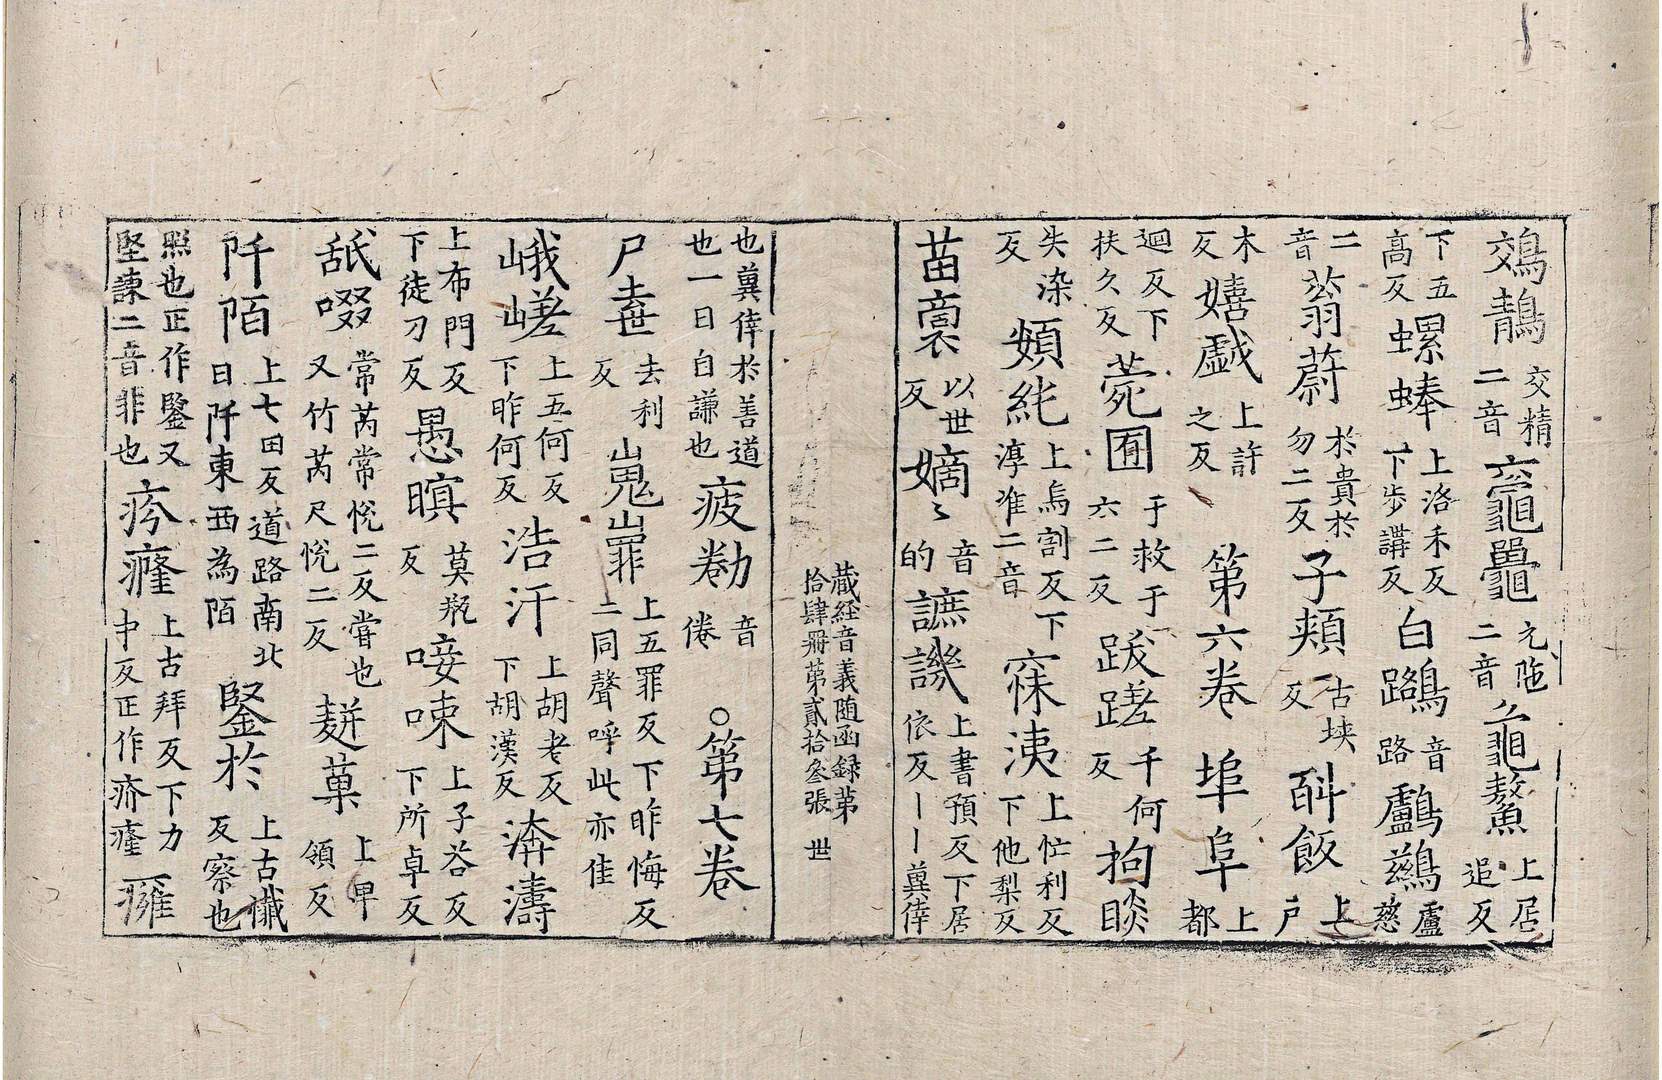 鵁鶄交精二音黿鼉元陁二音龜鼇上居追反
下五高反螺蜯上洛禾反下步講反白鷺音路鸕鷀盧慈
二音蓊蔚於貴於勿二反子頰古挾反酙飯上户
木反嬉戯上許之反第六卷埠阜上都
迴反下扶久反菀囿于救于六二反跋蹉千何反拘睒
失染反頞純上烏割反下淳准二音寐洟上忙利反下他梨反
苗裔以世反嫡〻音的謶譏上書預反下居依反丨丨冀倖
藏経音義随函録第拾肆冊第貳拾叄張 世
也冀倖於善道也一曰自謙也疲勌音倦○第七卷
尸棄去利反嵬嶵上五罪反下昨悔反二同聲呼此亦佳
峨嵯上五何反下昨何反浩汗上胡老反下胡漢反濤
上布門反下徒刀反愚暝莫瓶反唼㖨上子荅反下所卓反
舐啜常芮常恱二反嘗也又竹芮尺恱二反䴵菓上卑領反
阡陌上七田反道路南北曰阡東西為陌鋻於上古懺反察也
照也正作鑒又堅諫二音非也疥癃上古拜反下力中反正作疥癃癰